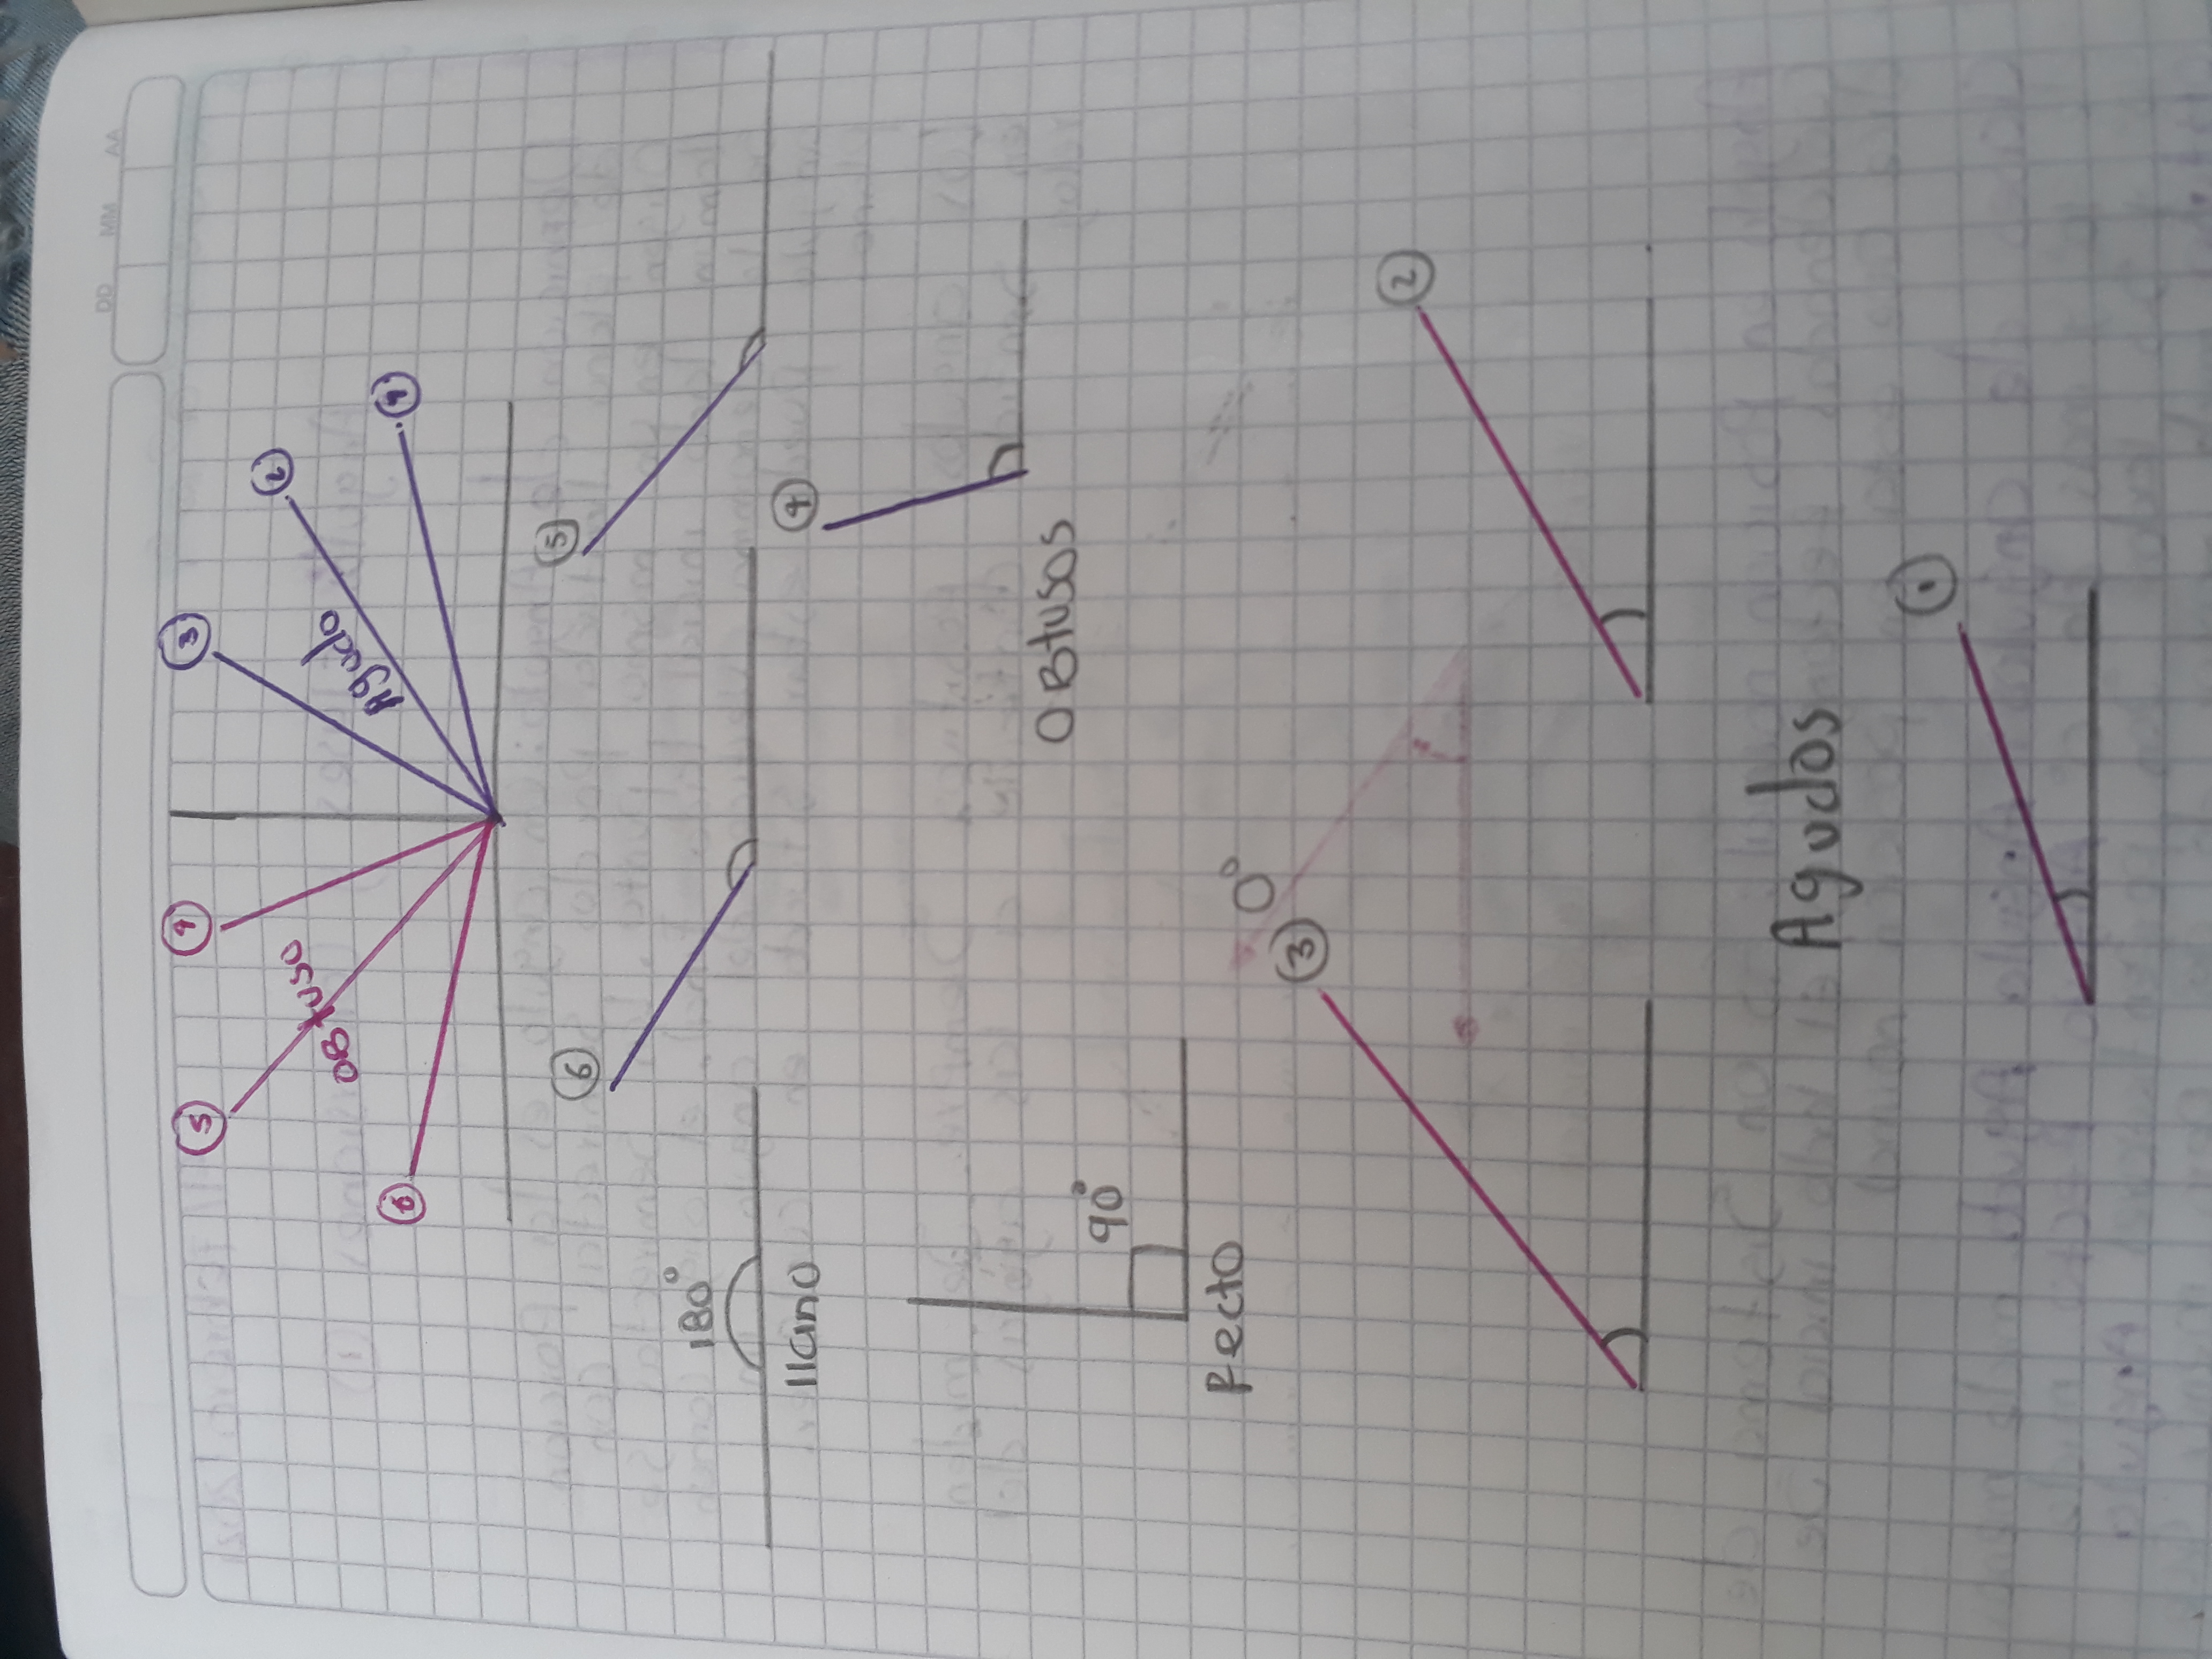 DD MM AA
5
4
3
2
1
6
OBtuso
Agudo
6
5
180°
llano
4
OBtusos
90°
Recto
0°
3
2
Agudos
1